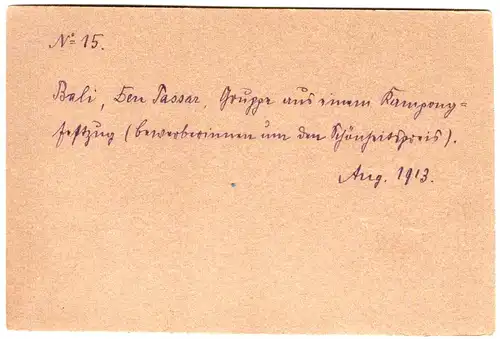 No 15.
Bali, Den Passar, Gruppe aus einem Kampong-
festzug (bewerberinnen um den Schönheitspreis).
Aug. 1913.